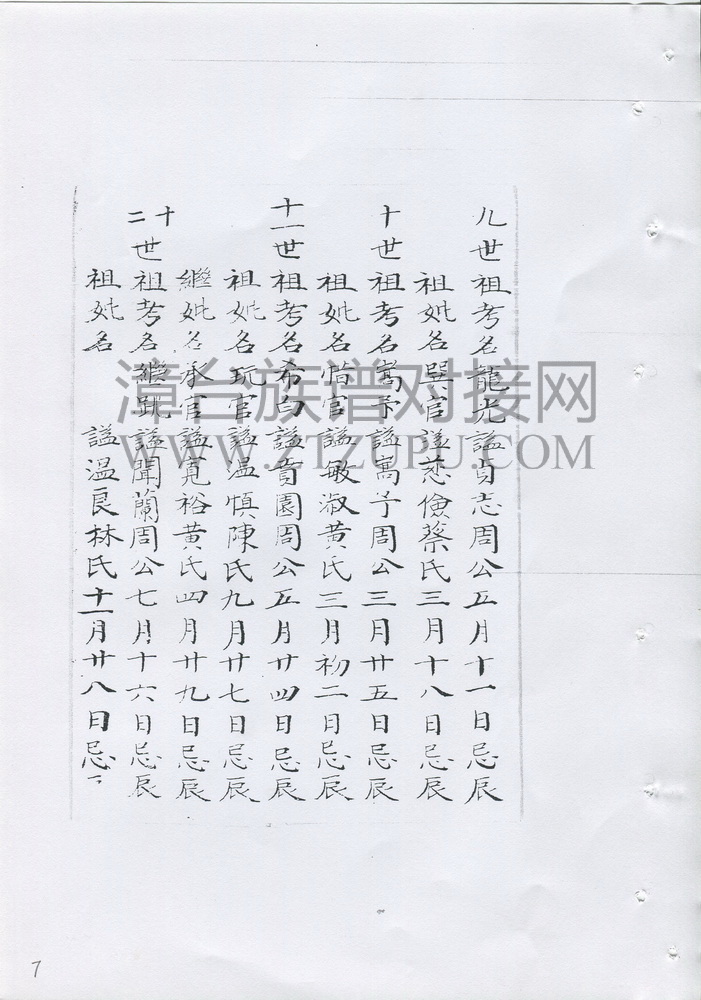 九世祖考名龍光謚貞志周公五月十一日忌辰
祖妣名巽官謚慈儉蔡氏三月十八日忌辰
十世祖考名嵩 謚寓予周公三月廿五日忌辰
祖妣名惜官謚敏淑黃氏三月初二日忌辰
十一世祖考名希白謚賁園周公五月廿四日忌辰
祖妣名玩官謚温慎陳氏九月廿七日忌辰
繼妣名承官謚寬裕黃氏四月廿九日忌辰
十二世祖考名繼 謚聞蘭周公七月十六日忌辰
祖妣名 謚温良林氏十一月廿八日忌
漳台族谱对接网
WWW.ZTZUPU.COM
7